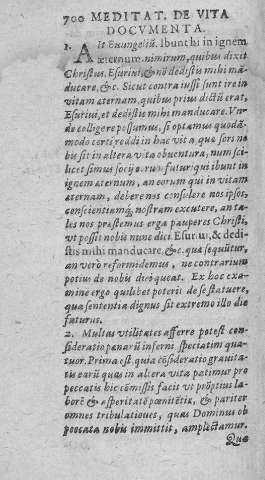 700 MEDITAT. DE VITA
DOCVMENTA.
1. AIt Euangeliũ. Ibunt hi in ignem
æternum. nimirum, quibus dixit
Christus. Esuriui, & nõ dedistis mihi mã-
ducare, &c. Sicut contra iussi sunt ire in
vitam æternam, quibus prius dictũ erat,
Esuriui, et dedistis mihi manducare. Vn-
de colligere possumus, si optamus quodã-
modo certi reddi in hac vita quæ sors no
bis sit in altera vita obuentura, num sci-
licet simus socij eorum futuri qui ibunt in
ignem æternum, an eorum qui in vitam
æternam, debere nos consulere nos ipsos,
conscientiamq́; nostram excutere, an ta-
les nos præstemus erga pauperes Christi,
vt possit nobis nunc dici. Esuriui, & dedi-
stis mihi manducare, & c. quæ sequũtur,
an verò reformidemus, ne contrarium
potius de nobis dici queat. Ex hoc exa-
mine ergo quilibet poterit de se statuere,
qua sententia dignus sit extremo illo die
futurus.
2. Multas vtilitates afferre potest con-
sideratio pœnarũ inferni speciatim qua-
tuor. Prima est, quia cõsideratio grauita-
tis earũ quas in altera vita patimur pro
peccatis hîc cõmissis facit vt prõptius la-
borẽ & asperitatẽ pœnitẽtiæ, & pariter
omnes tribulationes, quas Dominus ob
peccata nobis immittit, amplectamur.
Quæ